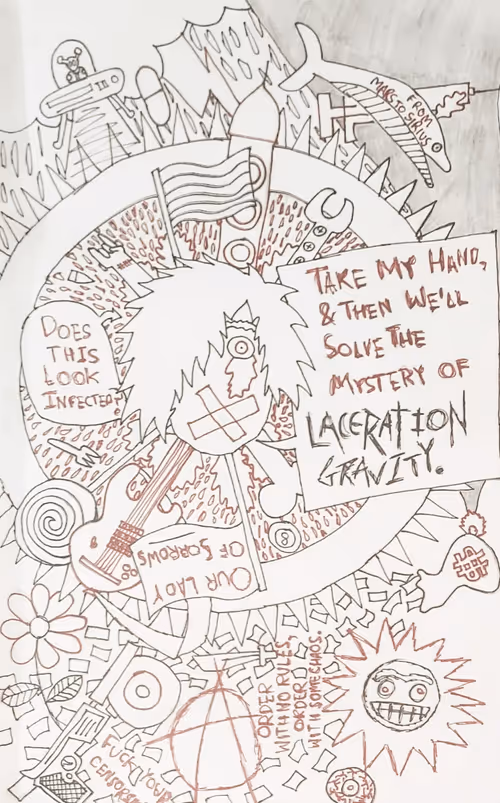 FROM
MARS TO SIRIUS
III
TAKE MY HAND,
& THEN WE'LL
SOLVE THE
MYSTERY OF
LACERATION
GRAVITY.
DOES
THIS
LOOK
INFECTED?
OUR LADY
OF SORROWS
8
ORDER
WITH NO RULES,
ORDER
WITH SOME CHAOS.
FUCK YOUR